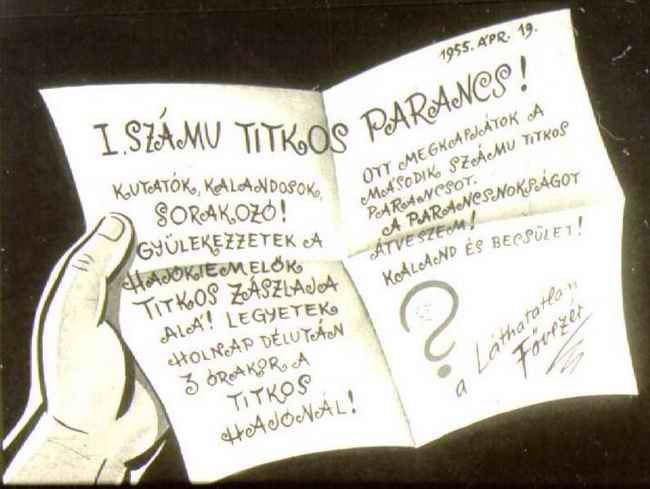 1955. ÁPR. 19.
I. SZÁMU TITKOS PARANCS!
KUTATÓK, KALANDOSOK,
SORAKOZÓ!
GYÜLEKEZZETEK A
HAJÓKIEMELŐK
TITKOS ZÁSZLAJA
ALÁ! LEGYETEK
HOLNAP DÉLUTÁN
3 ÓRAKOR A
TITKOS
HAJÓNÁL!
OTT MEGKAPJÁTOK A
MÁSODIK SZÁMU TITKOS
PARANCSOT.
A PARANCSNOKSÁGOT
ÁTVESZEM!
KALAND ÉS BECSÜLET!
?
a Láthatatlan
Fővezér